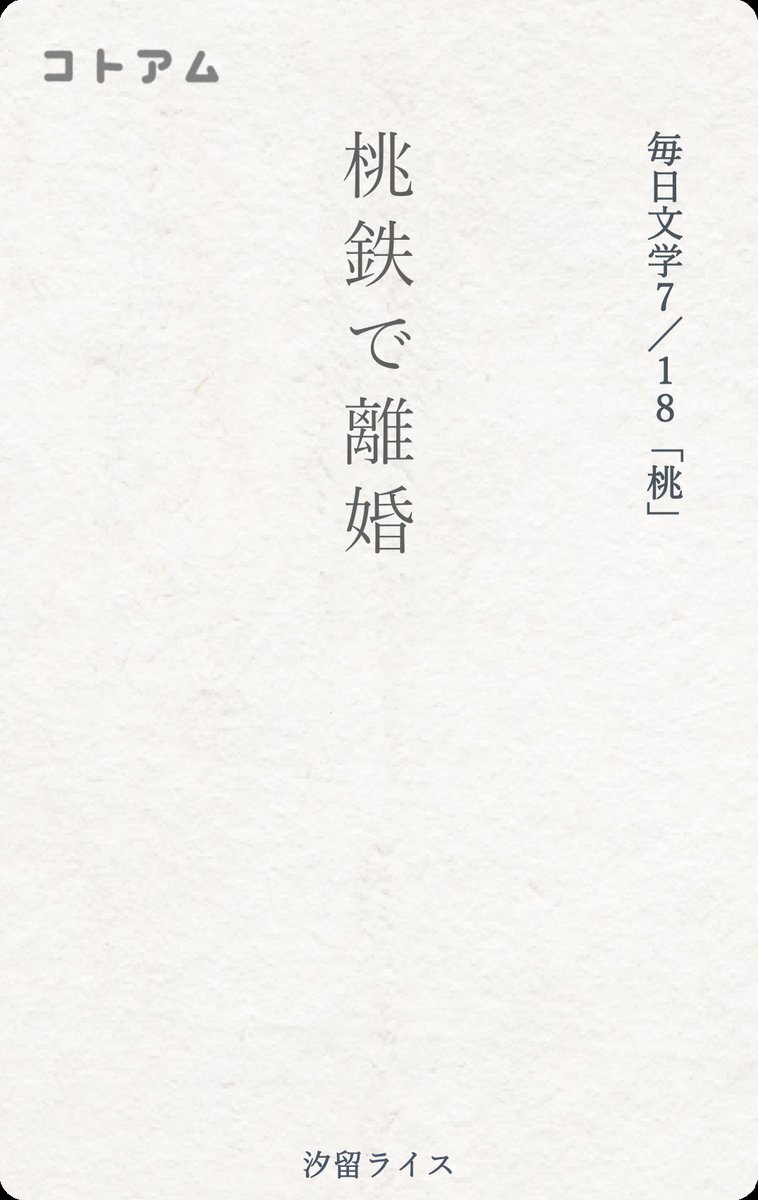 コトアム
毎日文学7／18「桃」
桃鉄で離婚
汐留ライス